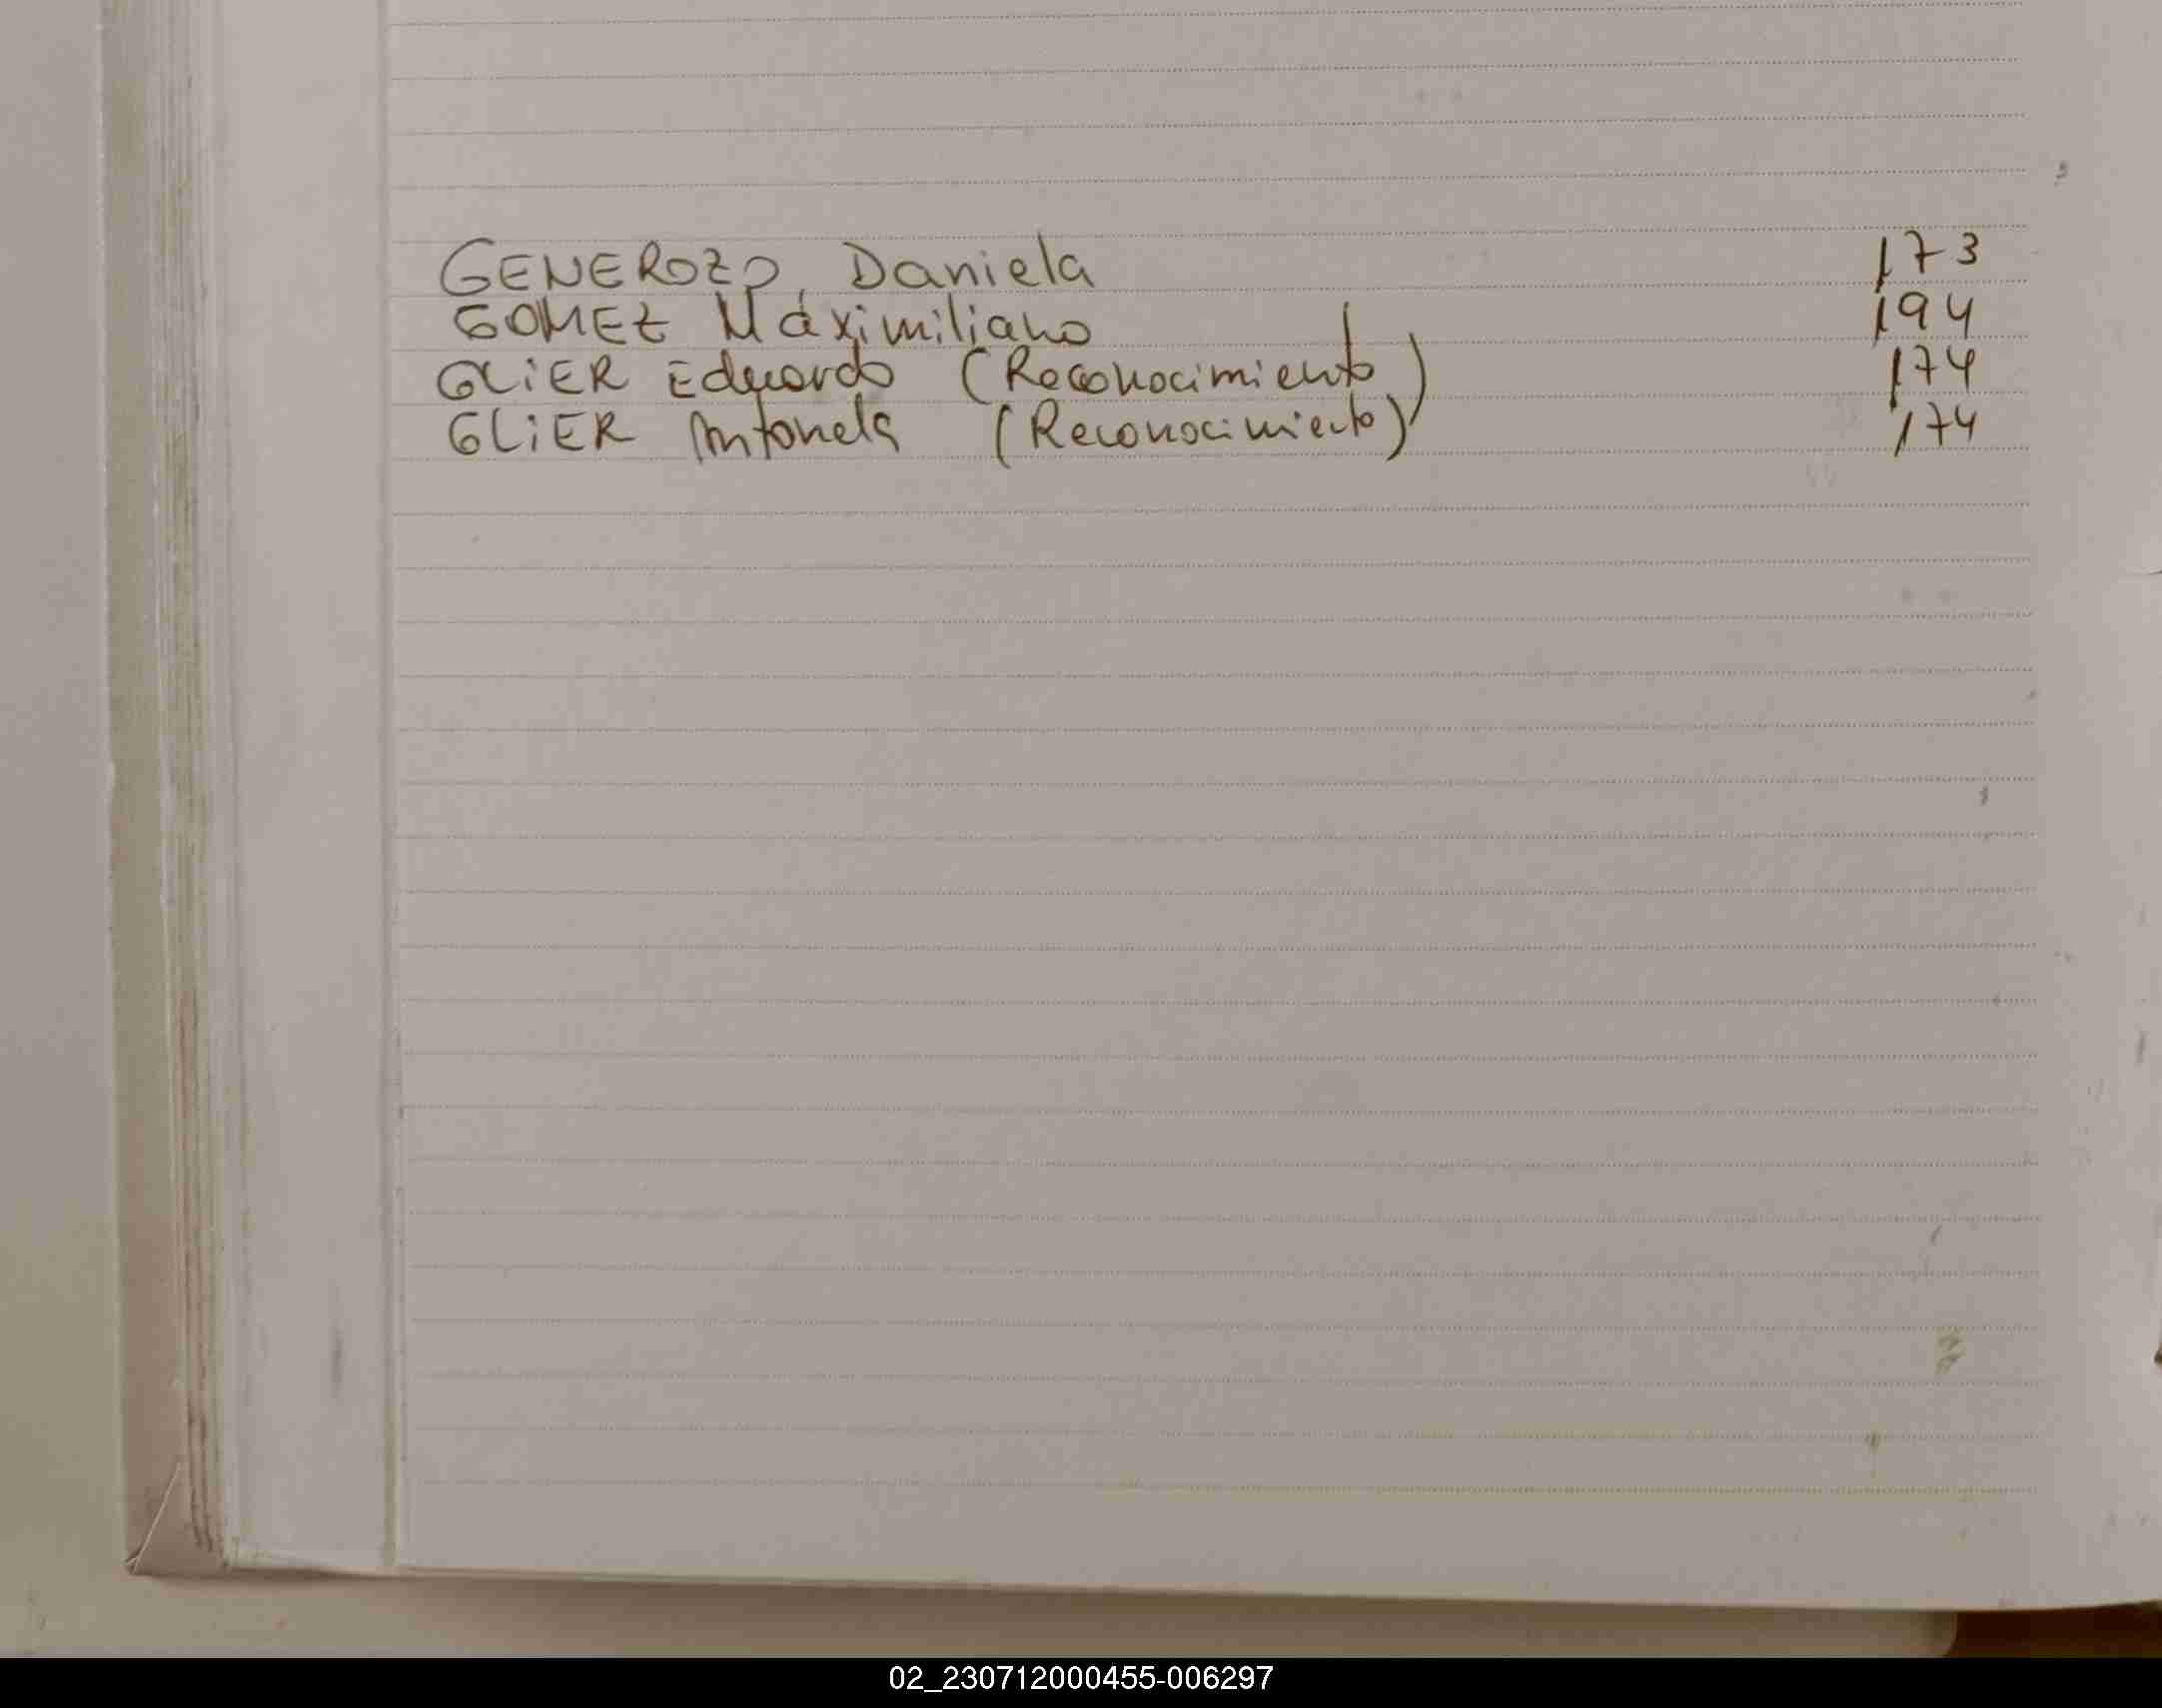 GENEROZO, Daniela 173
GOMEZ Máximiliano 194
GLiER Eduardo (Reconocimiento) 174
GLiER Antonela (Reconocimiento) 174
02_230712000455-006297